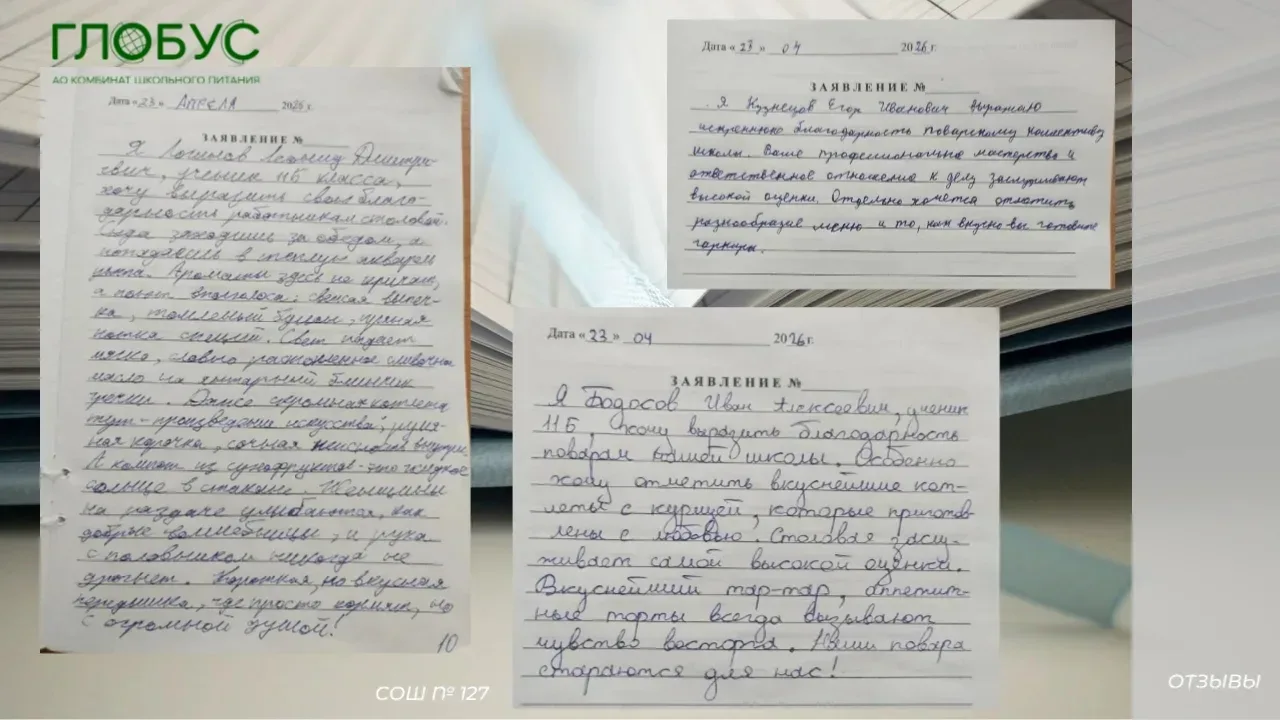 ГЛОБУС
АО КОМБИНАТ ШКОЛЬНОГО ПИТАНИЯ
Дата « 23 » АПРЕЛЯ 2026 г.
ЗАЯВЛЕНИЕ №
Я Дмитри-
евич, ученик 11Б класса,
хочу выразить свою благо-
дарность работникам столовой.
Сюда заходишь за обедом, а
попадаешь в теплую акварель
Ароматы здесь не кричат,
а поют вполголоса: свежая выпеч-
ка, томленый бульон,
нотка специй. Свет падает
мягко, словно растопленное сливочное
масло на янтарный блинчик
гречки. Даже скромная котлета
тут - произведение искусства; румя-
ная корочка, сочная внутри.
А компот из сухофруктов - это жидкое
солнце в стакане. Женщины
на раздаче улыбаются, как
добрые волшебницы, и рука
с половником никогда не
дрогнет. Короткая, но вкусная
передышка, где просто кормят, но
с огромной душой!
10
Дата « 23 » 04 2026 г.
ЗАЯВЛЕНИЕ №
Я Кузнецов Егор Иванович выражаю
искреннюю благодарность поварскому коллективу
школы. Ваше профессиональное мастерство и
ответственное отношение к делу заслуживают
высокой оценки. Отдельно хочется отметить
разнообразие меню и то, как вкусно вы готовите
гарниры.
Дата « 23 » 04 2026 г.
ЗАЯВЛЕНИЕ №
Я Бодосов Иван Алексеевич, ученик
11Б, хочу выразить благодарность
поварам нашей школы. Особенно
хочу отметить вкуснейшие кот-
леты с курицей, которые приготов-
лены с любовью. Столовая заслу-
живает самой высокой оценки.
Вкуснейший тар-тар, аппетит-
ные торты всегда вызывают
чувство восторга. Наши повара
стараются для нас!
СОШ № 127
ОТЗЫВЫ